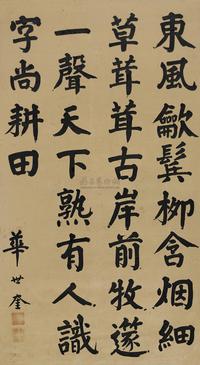 東風龡鬢柳含烟細
草茸茸古岸前牧篴
一聲天下熟有人識
字尚耕田
華世奎